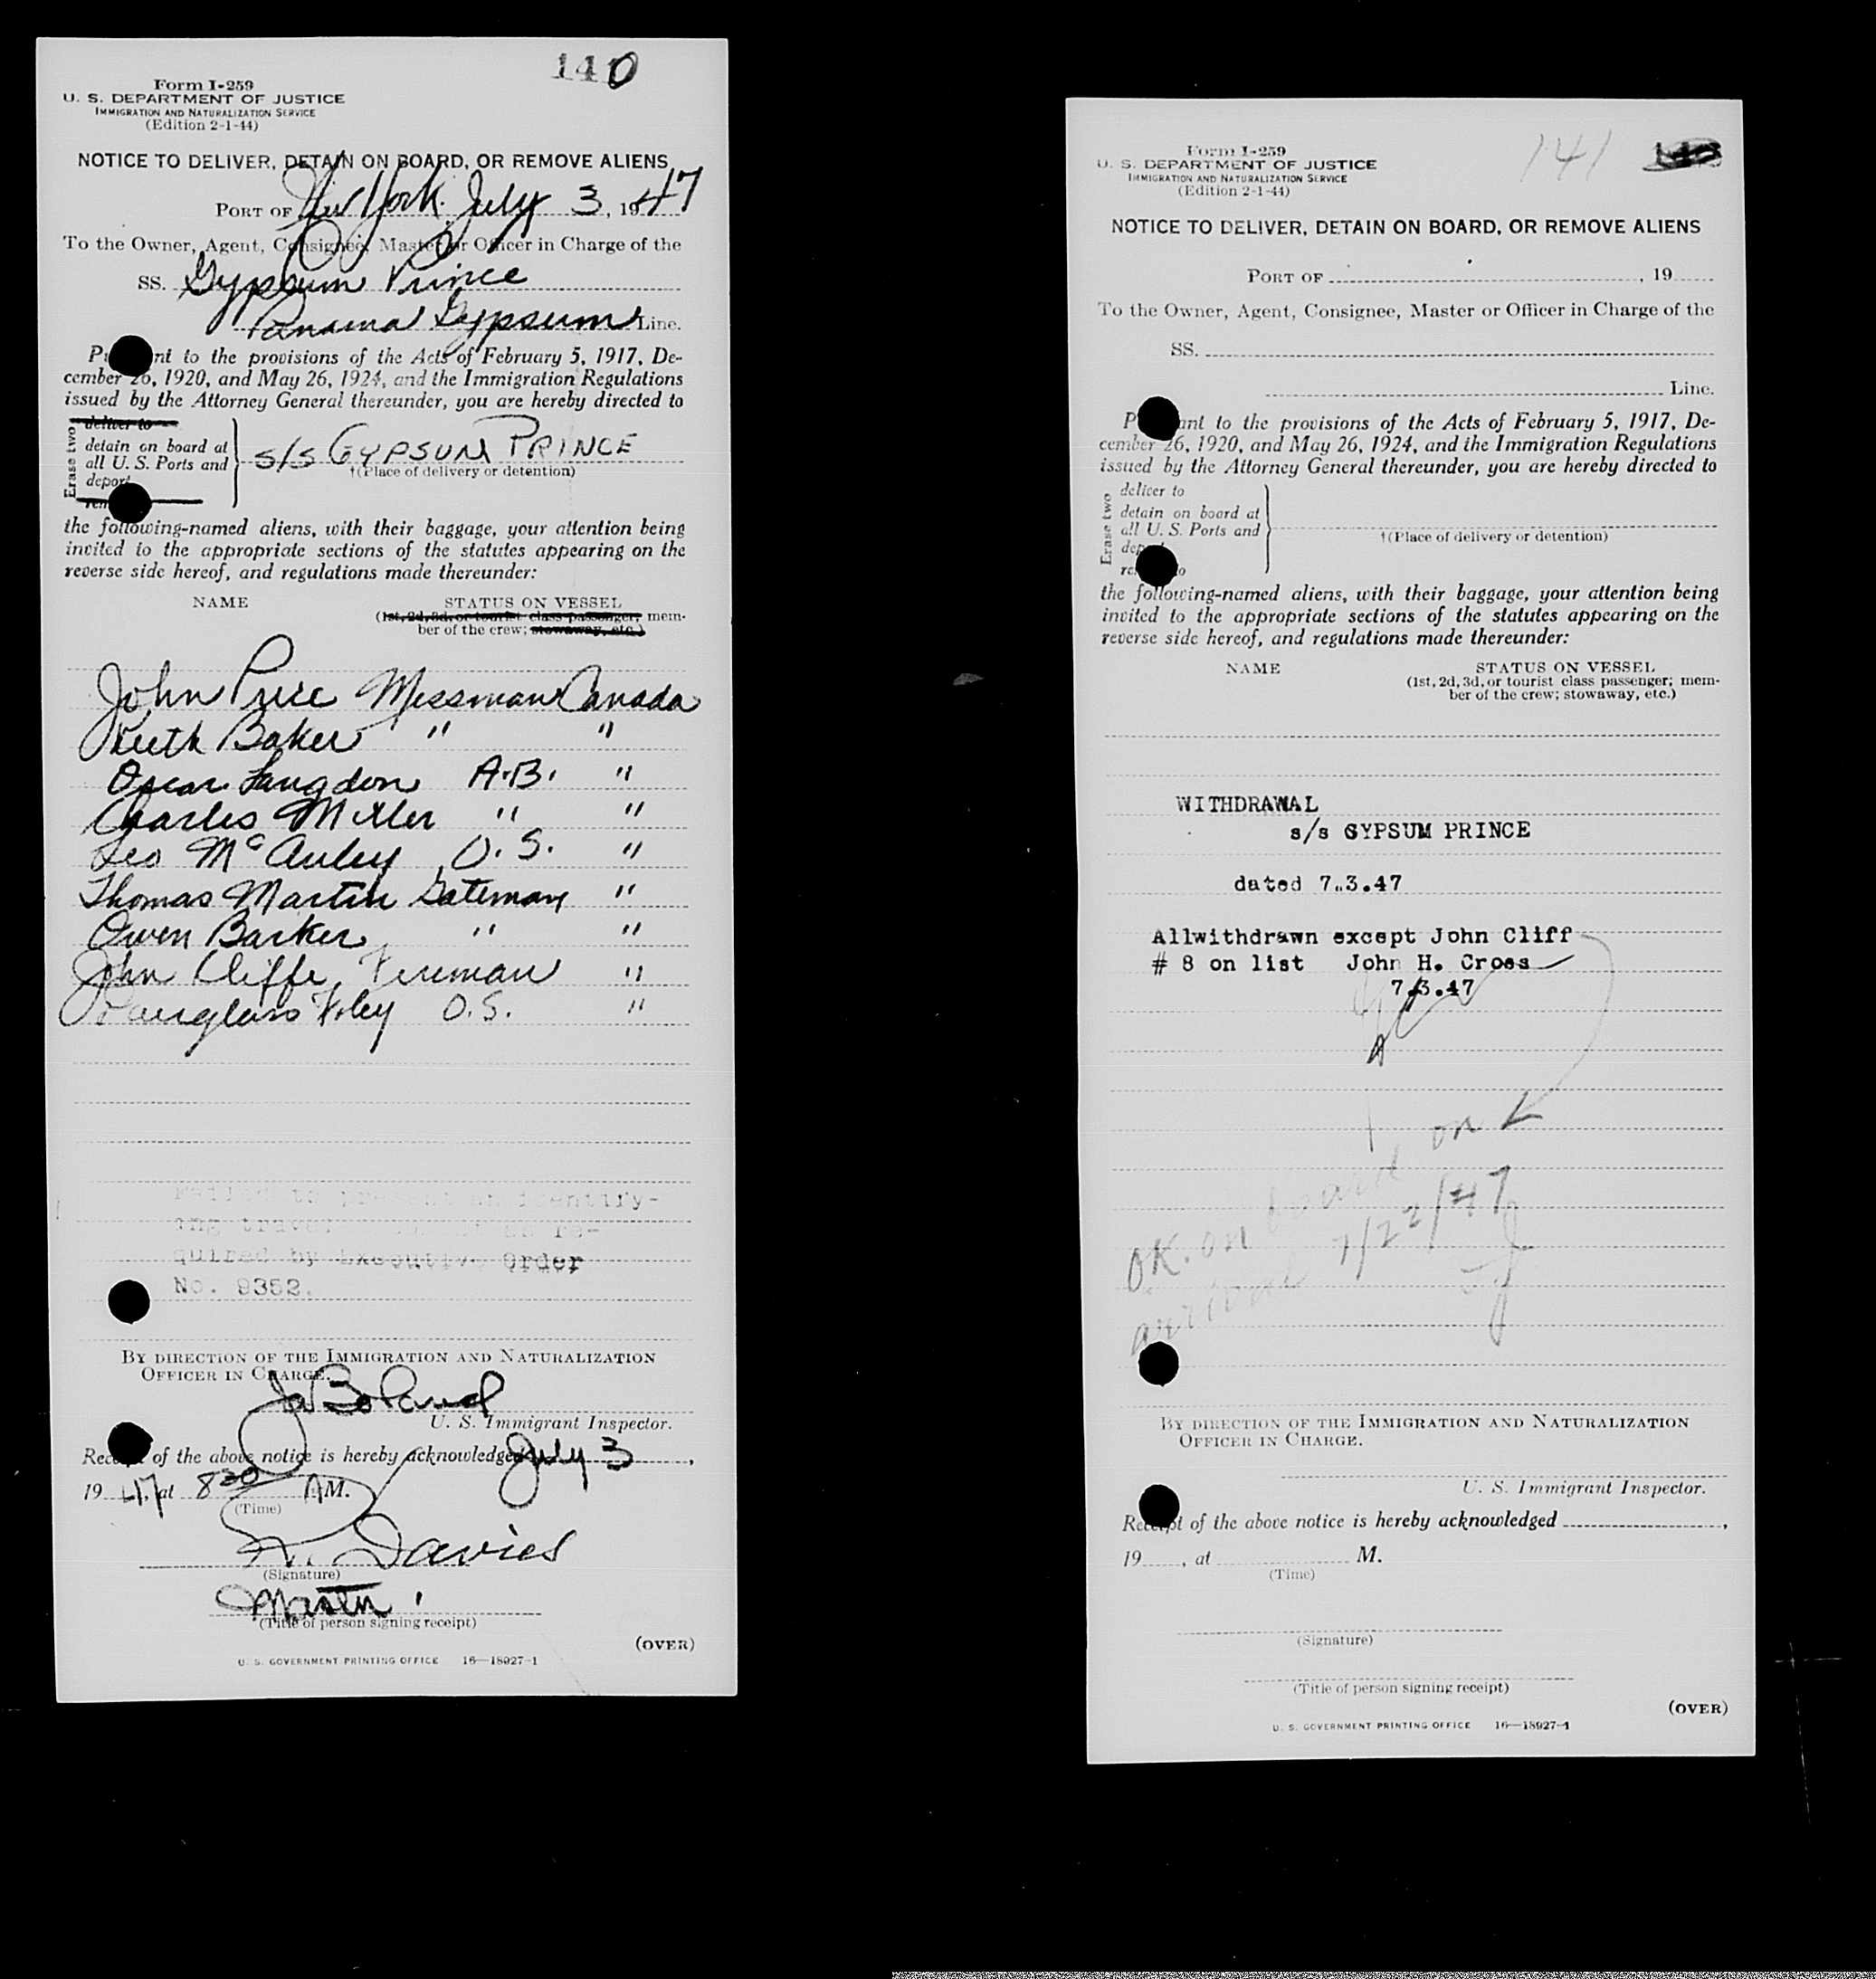 140
Form I-259
U. S. DEPARTMENT OF JUSTICE
IMMIGRATION AND NATURALIZATION SERVICE
(Edition 2-1-44)
NOTICE TO DELIVER, DETAIN ON BOARD, OR REMOVE ALIENS
PORT OF New York July 3, 1947
To the Owner, Agent, Consignee, Master or Officer in Charge of the
SS. Gypsum Prince
Panama Gypsum Line.
nt to the provisions of the Acts of February 5, 1917, De-
cember 26, 1920, and May 26, 1924, and the Immigration Regulations
issued by the Attorney General thereunder, you are hereby directed to
Erase two
deliver to
detain on board at
all U. S. Ports and
deport
s/s GYPSUM PRINCE
†(Place of delivery or detention)
the following-named aliens, with their baggage, your attention being
invited to the appropriate sections of the statutes appearing on the
reverse side hereof, and regulations made thereunder:
NAME STATUS ON VESSEL
(1st, 2d, 3d, or tourist class passenger; mem-
ber of the crew; stowaway, etc.)
John Price Messman Canada
Keith Baker " "
Oscar Langdon A.B. "
Charles Miller " "
Leo McAuley O.S. "
Thomas Martin Gateman "
Owen Barker " "
John Cliffe Fireman "
Douglass Foley O.S. "
Failed to present an identify-
ing travel re-
quired by Executive Order
No. 9352.
BY DIRECTION OF THE IMMIGRATION AND NATURALIZATION
OFFICER IN CHARGE.
Ja Boland
U. S. Immigrant Inspector.
Receipt of the above notice is hereby acknowledged July 3,
1947, at 8 30 A M.
(Time)
Davies
(Signature)
Master
(Title of person signing receipt)
(OVER)
U. S. GOVERNMENT PRINTING OFFICE 16—18927-1
141
Form I-259
U. S. DEPARTMENT OF JUSTICE
IMMIGRATION AND NATURALIZATION SERVICE
(Edition 2-1-44)
NOTICE TO DELIVER, DETAIN ON BOARD, OR REMOVE ALIENS
PORT OF , 19
To the Owner, Agent, Consignee, Master or Officer in Charge of the
SS.
Line.
ant to the provisions of the Acts of February 5, 1917, De-
cember 26, 1920, and May 26, 1924, and the Immigration Regulations
issued by the Attorney General thereunder, you are hereby directed to
Erase two
deliver to
detain on board at
all U. S. Ports and
†(Place of delivery or detention)
the following-named aliens, with their baggage, your attention being
invited to the appropriate sections of the statutes appearing on the
reverse side hereof, and regulations made thereunder:
NAME STATUS ON VESSEL
(1st, 2d, 3d, or tourist class passenger; mem-
ber of the crew; stowaway, etc.)
WITHDRAWAL
s/s GYPSUM PRINCE
dated 7.3.47
Allwithdrawn except John Cliff
# 8 on list John H. Cross
7.3.47
OK. on board on
arrival 7/22/47
BY DIRECTION OF THE IMMIGRATION AND NATURALIZATION
OFFICER IN CHARGE.
U. S. Immigrant Inspector.
Receipt of the above notice is hereby acknowledged ,
19 , at M.
(Time)
(Signature)
(Title of person signing receipt)
(OVER)
U. S. GOVERNMENT PRINTING OFFICE 16—18927-1